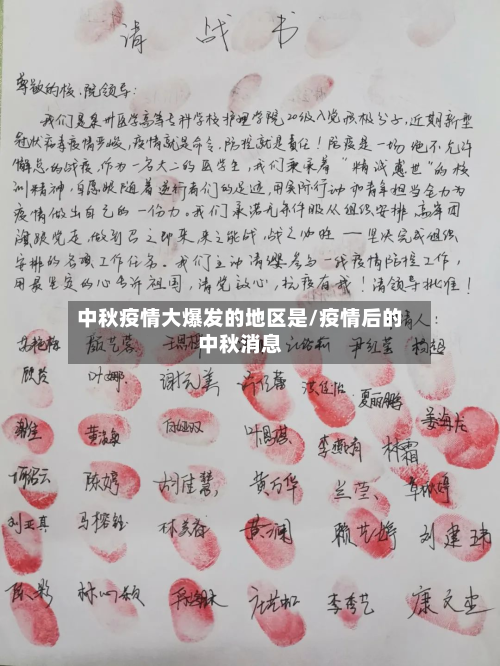 请战书
尊敬的校、院领导:
我们是泉州医学高等专科学校护理学院20级入党积极分子,近期新型
冠状病毒疫情严峻,疫情就是命令,防控就是责任!防疫是一场绝不允许
懈怠的战疫,作为一名大二的医学生,我们秉承着“精诚惠世”的校
训精神,自愿跟随着逆行者们的足迹,用实际行动和青年担当全力为
疫情做出自己的一份力。我们承诺无条件服从组织安排,高举团
旗跟党走,做到召之即来,来之能战,战之必胜——坚决完成组织
安排的各项工作任务。我们主动请缨参与一线疫情防控工作,
用最坚定的心告诉祖国,请党放心,抗疫有我!请领导批准!
中秋疫情大爆发的地区是/疫情后的
中秋消息
人:
尹红莹
叶娜 谢沅美 夏丽鹏
姜海龙
谢佳 黄海敏 李雅晴 林霜
陈婷 胡佳慧 黄万华 兰莹
刘亚真 马榕钰 林美容 黄澜 赖艺婷 刘建瑞
陈彩 林心颖 庄艺松 李秀艺 康文忠